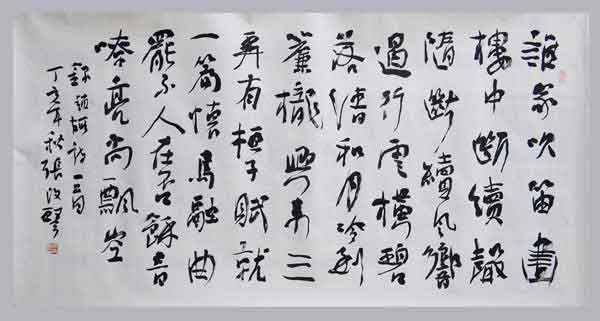 誰家吹笛畫
樓中斷續聲
隨斷續風響
遏行雲橫碧
落清和月冷到
簾櫳興來三
弄有桓子賦就
一篇懷馬融曲
罷不人在否餘音
嘹亮尚飄空
錄趙嘏詩一首
丁亥年秋張改琴